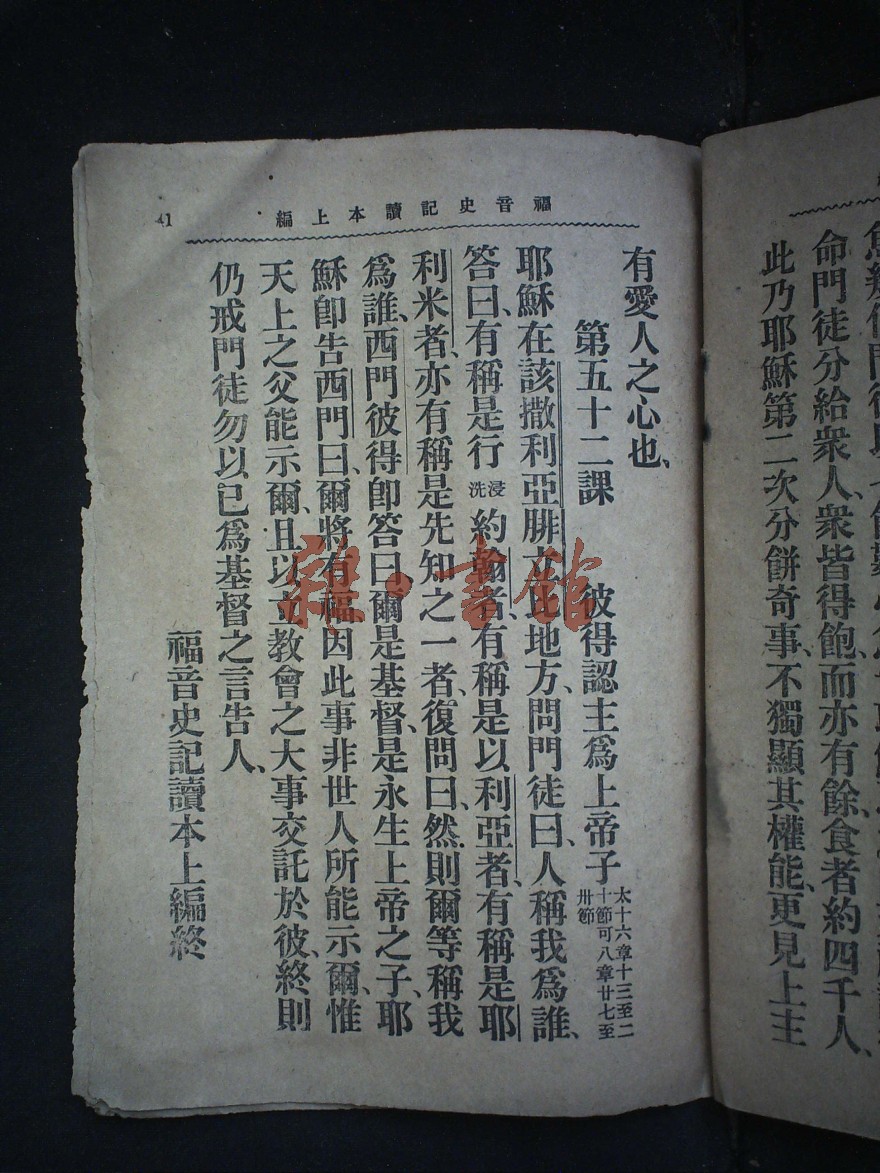 此乃耶穌第二次分餅奇事、不獨顯其權能、更見上主
命門徒分給衆人、衆皆得飽、而亦有餘、食者約四千人、
福音史記讀本上編
41
有愛人之心也、
第五十二課 彼得認主爲上帝子 太十六章十三至二十節可八章廿七至卅節
耶穌在該撒利亞腓立比地方、問門徒曰、人稱我爲誰、
答曰、有稱是行浸洗約翰者、有稱是以利亞者、有稱是耶
利米者、亦有稱是先知之一者、復問曰、然則爾等稱我
爲誰、西門彼得卽答曰、爾是基督、是永生上帝之子、耶
穌卽告西門曰、爾將有福、因此事非世人所能示爾、惟
天上之父能示爾、且以立教會之大事交託於彼、終則
仍戒門徒勿以己爲基督之言告人、
福音史記讀本上編終